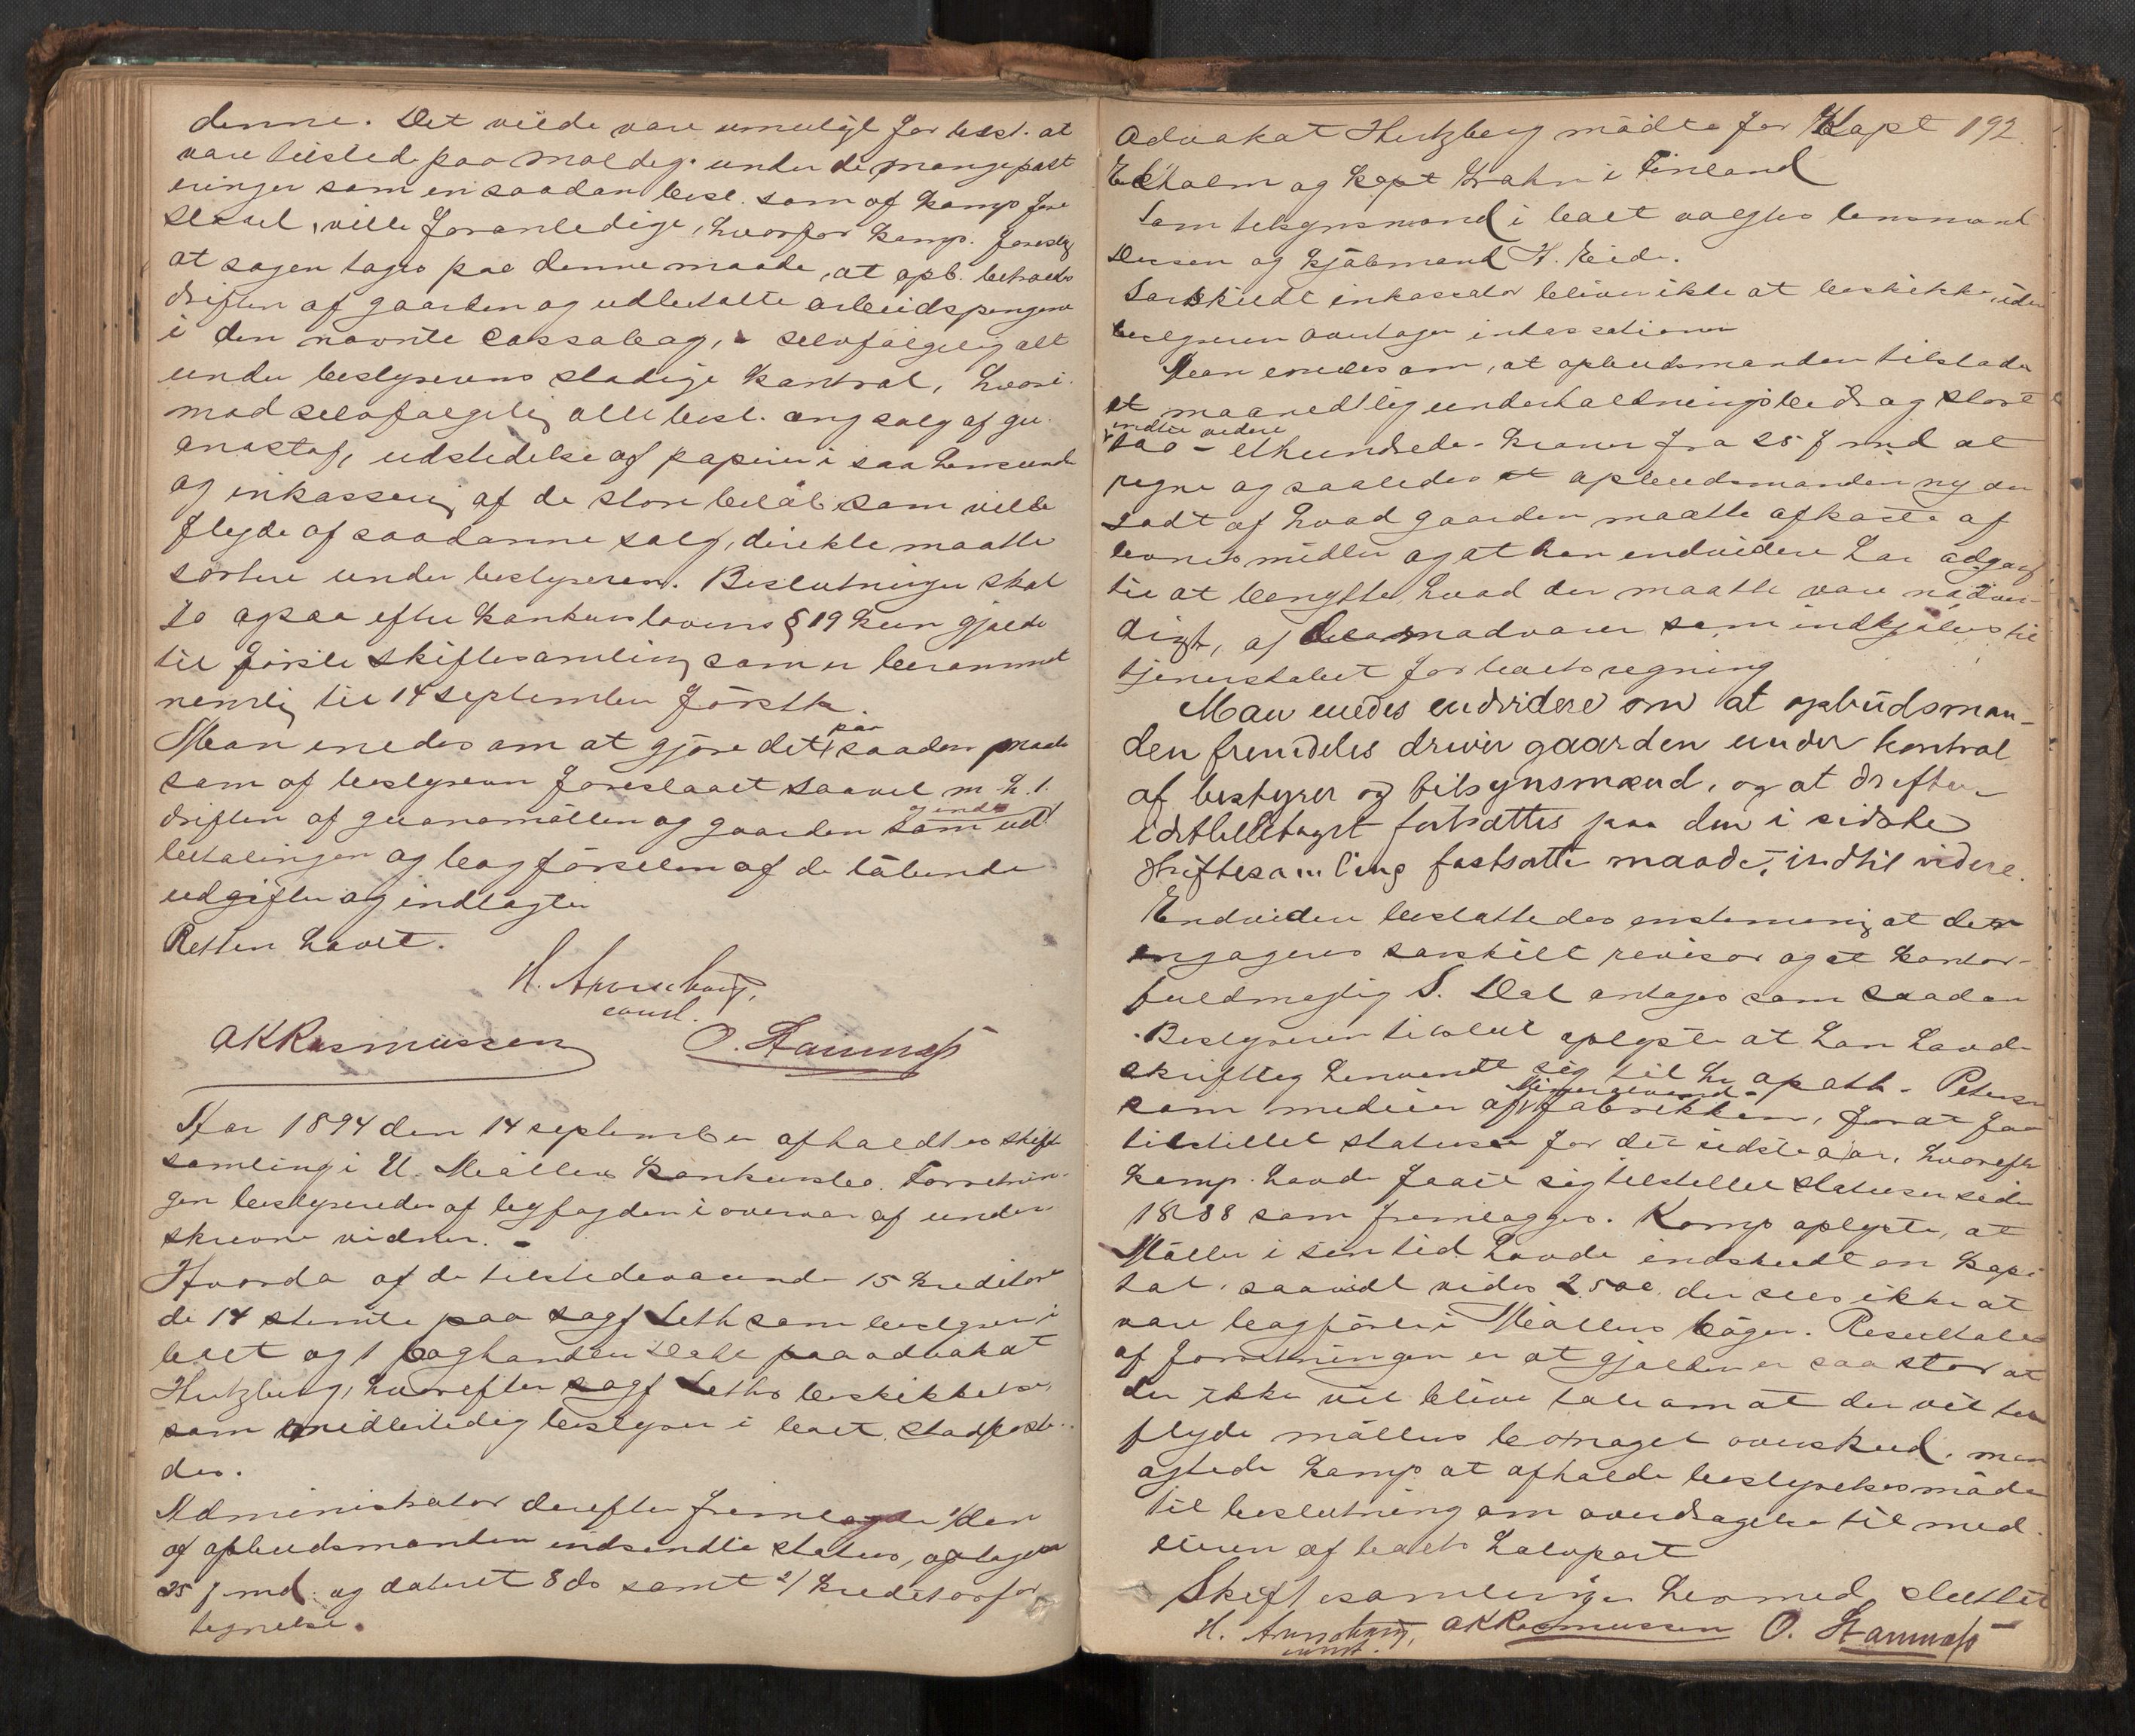 denne. Det vilde være umuligt for best. at
være tilstede paa Moldeg. under de mange post
eringer som en saadan best. som af Komp. fore
slaaet, ville foranledige, hvorfor Komp. foreslog
at sagen tages paa denne maade, at opb. betroedes
driften af gaarden og udbetalte arbeidspengene
i den nævnte Cassabog, selvfølgelig alt
under bestyrerens stadige kontrol, hvori
mod selvfølgelig alle best. ang salg af gu
anostof, udstedelse af papirer i saa henseende
og inkassering af de store beløb som ville
flyde af saadanne salg, direkte maatte
sortere under bestyreren. Beslutninger skal
jo ogsaa efter Konkurslovens § 19 kun gjælde
til første skiftesamling som er berammet
nemlig til 14 september førstk.
Man enedes om at gjøre det paa saadan maade
som af bestyreren foreslaaet saavel m. h. t.
driften af guanomøllen og gaarden som ud og ind
betalingen og bogførselen af de løbende
udgifter og indtægter
Retten hævet.
const.
AKRasmussen O. Hamnæs
Aar 1894 den 14 september afholdtes skifte
samling i U. Møllers konkursbo. Forretnin
gen bestyredes af bygfogden i overvær af under
skrevne vidner. -
Hvorda af de tilstedeværende 15 kreditorer
de 14 stemte paa sagf Leth som bestyrer i
boet og 1 boghandler Dahl paa advokat
Hertzberg, hvorefter sagf Leths beskikkelse
som midlertidig bestyrer i boet stadfæste
des.
Administrator derefter fremlagde 1/ den
af opbudsmanden indsendte status, optagen
25 f. md. og dateret 8 ds samt 2/ kreditorfor
tegnelse.
Advokat Hertzberg mødte for Kapt 192.
Ekholm og Kapt Krahn i Finland
Som tilsynsmænd i boet valgtes lensmand
og kjøbmand H. Eide.
Særskildt inkassator bliver ikke at beskikke, idet
bestyreren overtager inkassationen
Man enedes om, at opbudsmanden tilstaaes
et maanedtlig underholdningsbidrag stort
indtil videre
100 - ethundrede - kroner fra 25 f md at
regne og saaledes at opbudsmanden nyder
godt af hvad gaarden maatte afkaste af
levnesmidler og at han endvidere har adgang
til at benytte, hvad der maatte være nødven
digt, af madvarer som indkjøbes til
tjenerskabet for boets regning
Man enedes endvidere om at opbudsman-
den fremdeles driver gaarden under kontrol
af bestyrer og tilsynsmænd, og at driften
idethelletaget fortsættes paa den i sidste
skiftesamling fastsatte maade, indtil videre.
Endvidere besluttedes enstemmig at der
engageres særskilt revisor og at kontor-
fuldmægtig S. Dal antages som saadan
Bestyreren tilslut oplyste at han havde
skriftlig henvendt sig til hr apoth. Petersen
som medeier af fabrikken, for at faa
tilstillet statuser for det sidste aar, hvorefter
Komp. havde faaet sig tilstillet statuser siden
1888 som fremlagges. Komp oplyste, at
Møller i sin tid havde indskudt en kapi
tal, saavidt vides 2500, der sees ikke at
være bogført i Møllers bøger. Resultatet
af forretningen er at gjælden er saa stor at
der ikke vil blive tale om at der vil til
flyde møllers bo noget overskud, men
agtede Komp at afholde bestyrelsesmøde
til beslutning om overdragelse til med
eieren af boets halvpart
Skiftesamlingen hermed sluttet
const. AKRasmussen O. Hamnæs